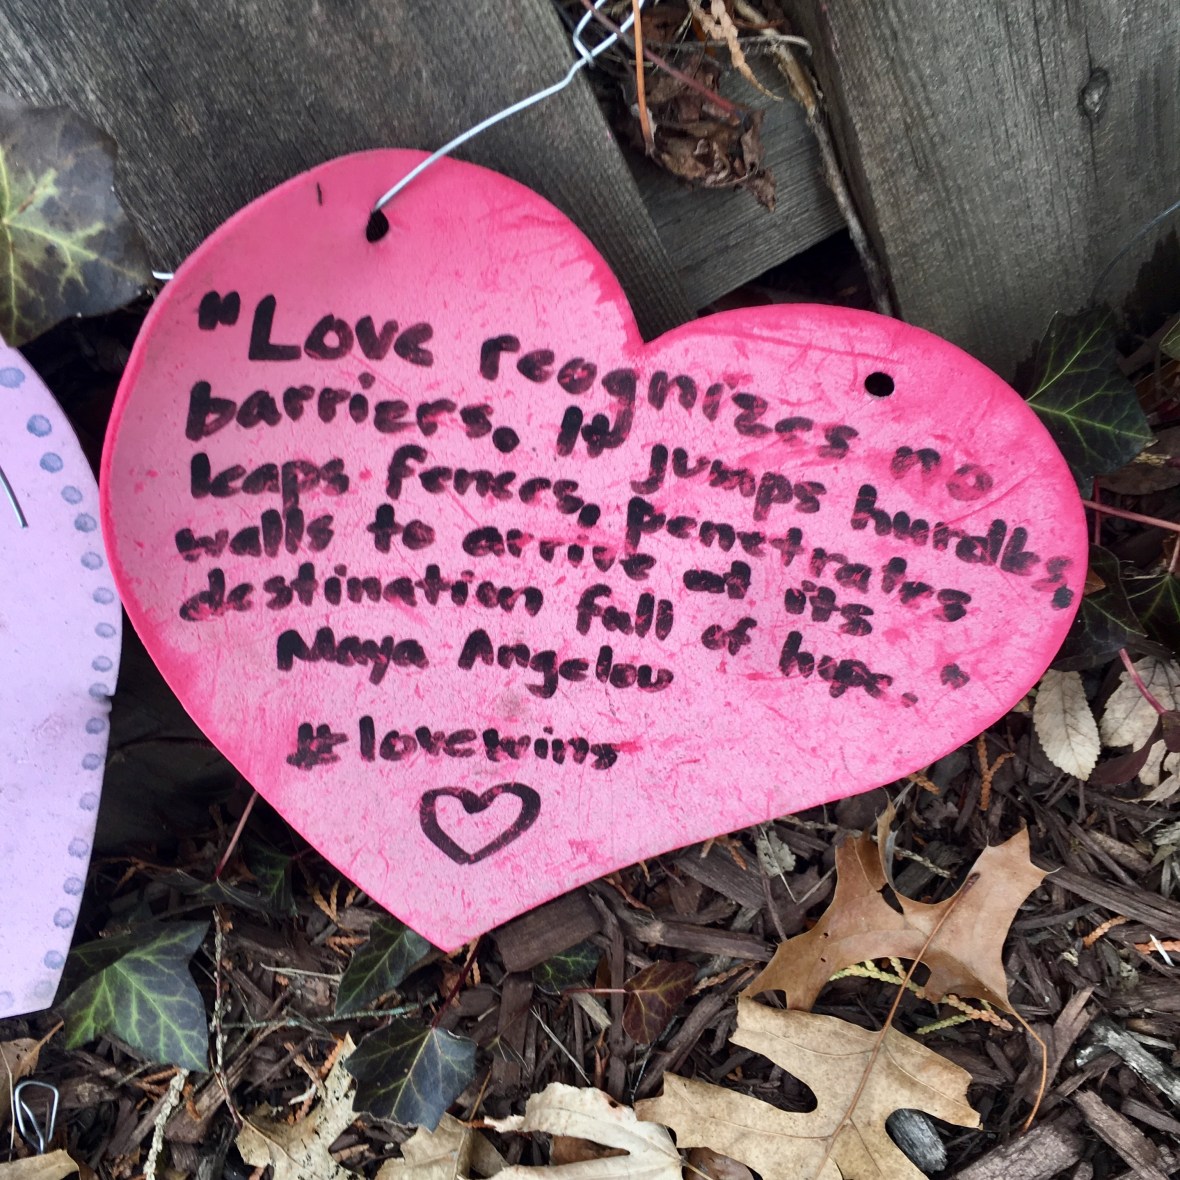 "Love recognizes no
barriers. It jumps hurdles,
leaps fences, penetrates
walls to arrive at its
destination full of hope."
Maya Angelou
#lovewins